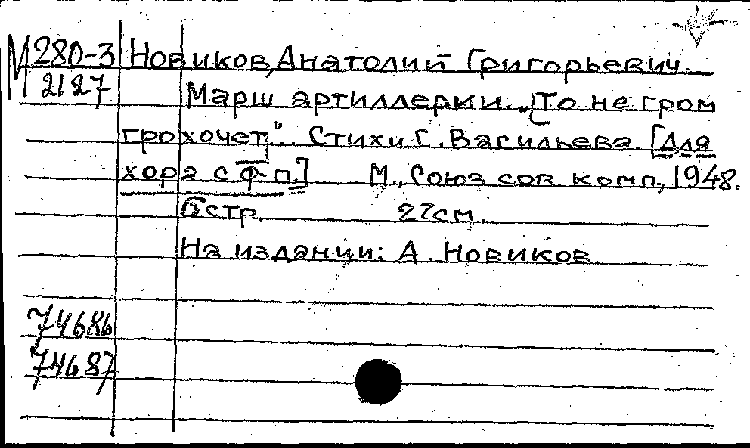 М 280-3 Новиков, Анатолий Григорьевич.
2127 Марш артиллерии. "То не гром
грохочет". Стихи С. Васильева. [Для
хора с ф-п.] М., Союз сов комп, 1948.
стр. 27см.
На издании: А. Новиков
74686
74687